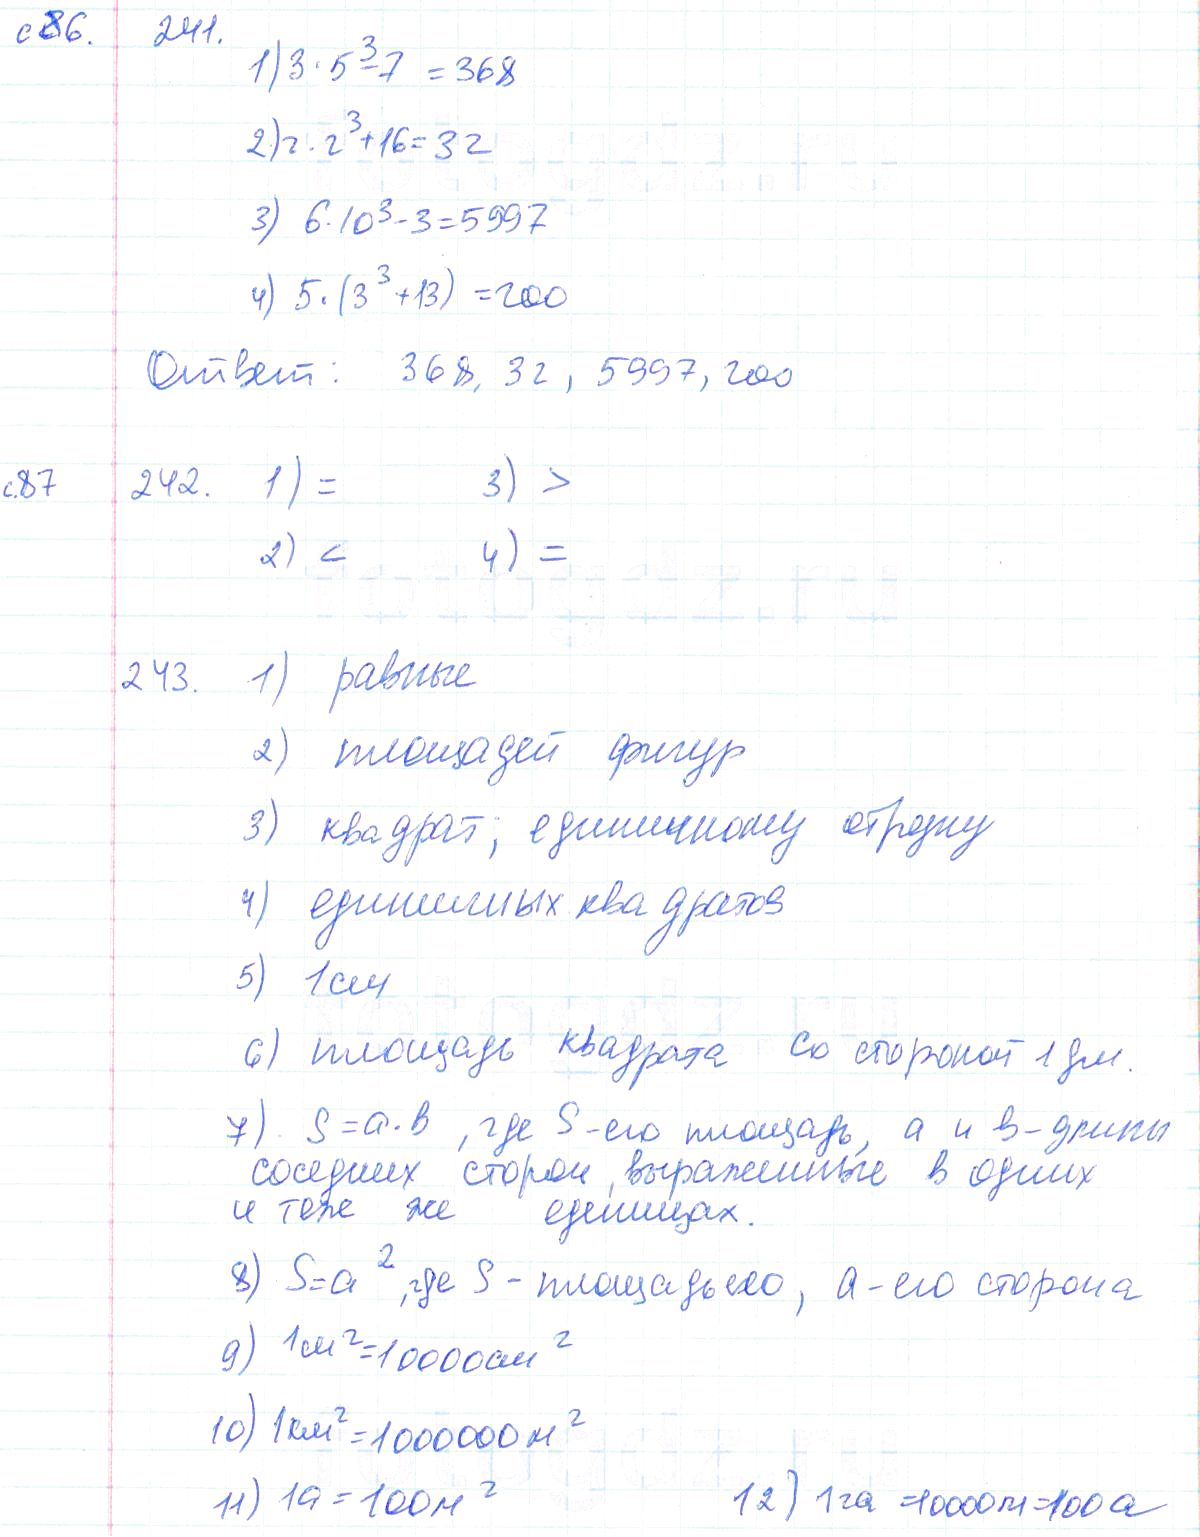 с86. 241.
1) 3·5³-7 = 368
2) 2·2³+16=32
3) 6·10³-3=5997
4) 5·(3³+13) =200
Ответ: 368, 32, 5997, 200
с.87 242. 1) = 3) >
2) < 4) =
243. 1) равные
2) площадей фигур
3) квадрат; единичному отрезку
4) единичных квадратов
5) 1см
6) площадь квадрата со стороной 1 дм.
7) S=a·в, где S-его площадь, a и в-длины
соседних сторон, выраженные в одних
и техе же единицах.
8) S=a², где S - площадь его, a-его сторона
9) 1см²=10000см²
10) 1км²=1000000м²
11) 1а=100м² 12) 1га =10000м=100а